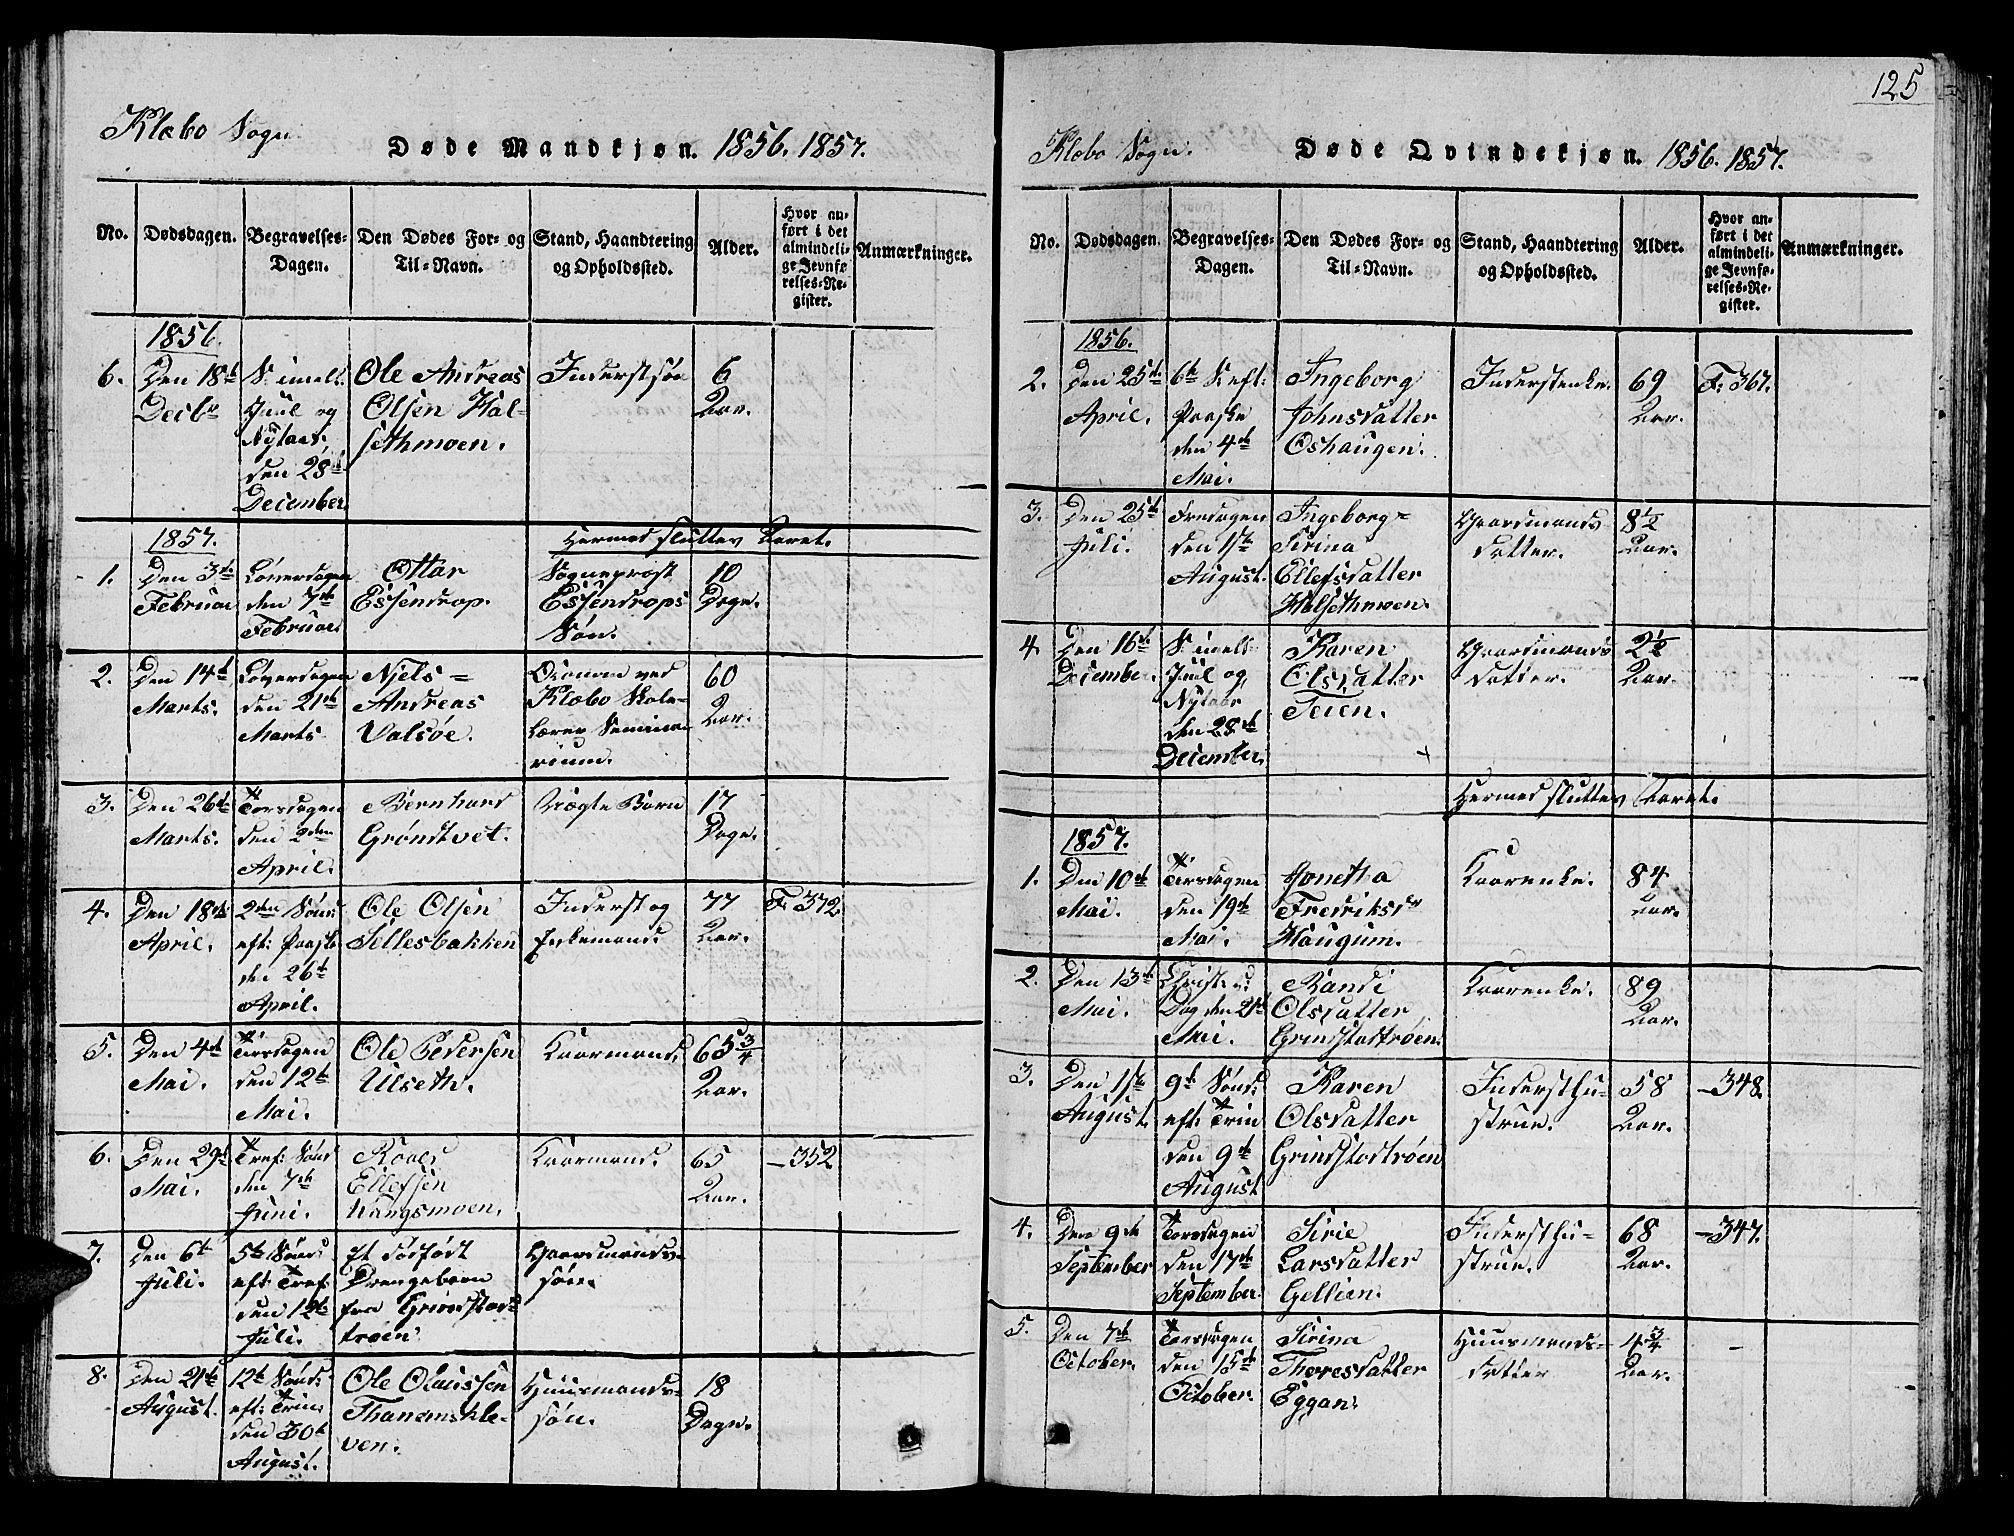 125
Klæbo Sogn.
Døde Mandkjøn. 1856. 1857.
No.
Dødsdagen.
Begravelses-
Dagen.
Den Dødes For- og
Til-Navn.
Stand, Haandtering
og Opholdssted.
Alder.
Hvor an-
ført i det
almindeli-
ge Jevnfø-
relses-Re-
gister.
Anmærkninger.
1856.
6.
Den 18de
Decbr
S. imell.
Juul og
Nytaar,
den 28de
December.
Ole Andreas
Olsen Hal-
sethmoen.
Inderstsøn
6
Aar.
Hermed sluttes Aaret.
1857.
1.
Den 3de
Februar
Løverdagen
den 7de
Februar.
Ottar
Essendrop.
Sogneprest
Essendrops
Søn.
10
Dage.
2.
Den 14de
Marts.
Løverdagen
den 21de
Marts
Njels =
Andreas
Valsøe.
Oconom ved
Klæbo Skole-
lærer Semina-
rium.
60
Aar.
3.
Den 26de
Marts.
Torsdagen
den 2den
April.
Bernhard
Grøndtvet.
Uægte Barn
17
Dage.
4.
Den 18de
April.
2den Sønd:
eft: Paaske
den 26de
April.
Ole Olsen
Sellesbakken
Inderst og
Enkemand.
77
Aar.
F. 372.
5.
Den 4de
Mai.
Tirsdagen
den 12te
Mai.
Ole Pedersen
Ulseth.
Kaarmand.
65 3/4
Aar.
6.
Den 29de
Mai.
Tref: Sønd
den 7de
Juni.
Roald
Ellefsen
Vangsmoen.
Kaarmand.
65
Aar.
— 352
7.
Den 6te
Juli.
5te Sønd:
eft: Tref:
den 12te
Juli.
Et dødfødt
Drengebarn
fra Grindstad-
trøen.
Gaardmands-
søn.
8.
Den 21de
August.
12te Sønd:
eft: Trin:
den 30te
August.
Ole Olaussen
Thanemskle-
ven.
Huusmands-
søn.
18
Dage.
Klæbo Sogn.
Døde Qvindekjøn. 1856. 1857.
No.
Dødsdagen.
Begravelses-
Dagen.
Den Dødes For- og
Til-Navn.
Stand, Haandtering
og Opholdssted.
Alder.
Hvor an-
ført i det
almindeli-
ge Jevnfø-
relses-Re-
gister.
Anmærkninger.
1856.
2.
Den 25de
April.
6te S. eft:
Paaske
den 4de
Mai.
Ingeborg
Johnsdatter
Oshaugen.
Inderstenke.
69
Aar.
F. 367.
3.
Den 25de
Juli.
Fredagen
den 1ste
August.
Ingeborg =
Sirina
Ellefsdatter
Halsethmoen.
Gaardmands
datter.
8 1/2
Aar.
4.
Den 16de
December.
S. imell.
Juul og
Nytaar
den 28de
December.
Karen
Olsdatter
Teien.
Gaardmands
datter.
2 1/2
Aar.
Hermed sluttes Aaret.
1857.
1.
Den 10de
Mai.
Tirsdagen
den 19de
Mai.
Jonetha
Fredriksdr
Haugum.
Kaarenke.
84
Aar.
2.
Den 13de
Mai.
Christi
Dag den 21de
Mai.
Randi
Olsdatter
Grindstadtrøen.
Kaarenke.
89
Aar.
3.
Den 1ste
August.
9de Sønd:
eft: Trin
den 9de
August
Karen
Olsdatter
Grindstadtrøen
Indersthu-
strue.
58
Aar.
— 348.
4.
Den 9de
September
Torsdagen
den 17de
September.
Sirie
Larsdatter
Gellien.
Indersthu-
strue.
68
Aar.
— 347.
5.
Den 7de
October.
Torsdagen
den 15de
October.
Sirina
Thoresdatter
Eggan.
Huusmands-
datter
4 3/4
Aar.
-